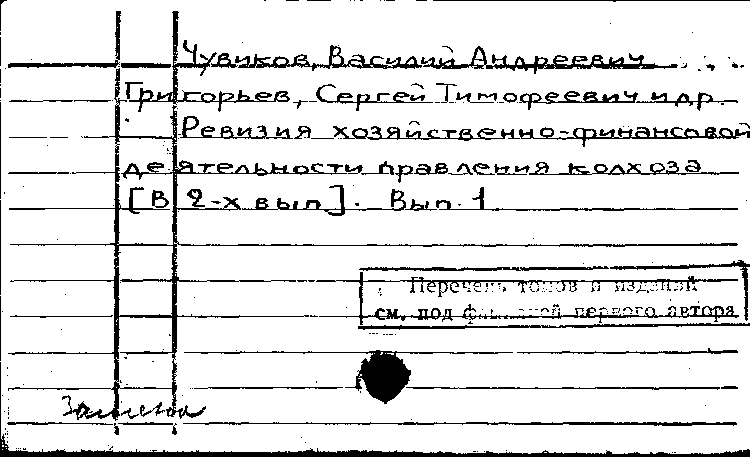 Чувиков, Василий Андреевич
Григорьев, Сергей Тимофеевич и др.
Ревизия хозяйственно-финансовой
деятельности правления колхоза
[В 2-х вып]. Вып. 1
Перечень томов и изданий
см. под фамилией первого автора